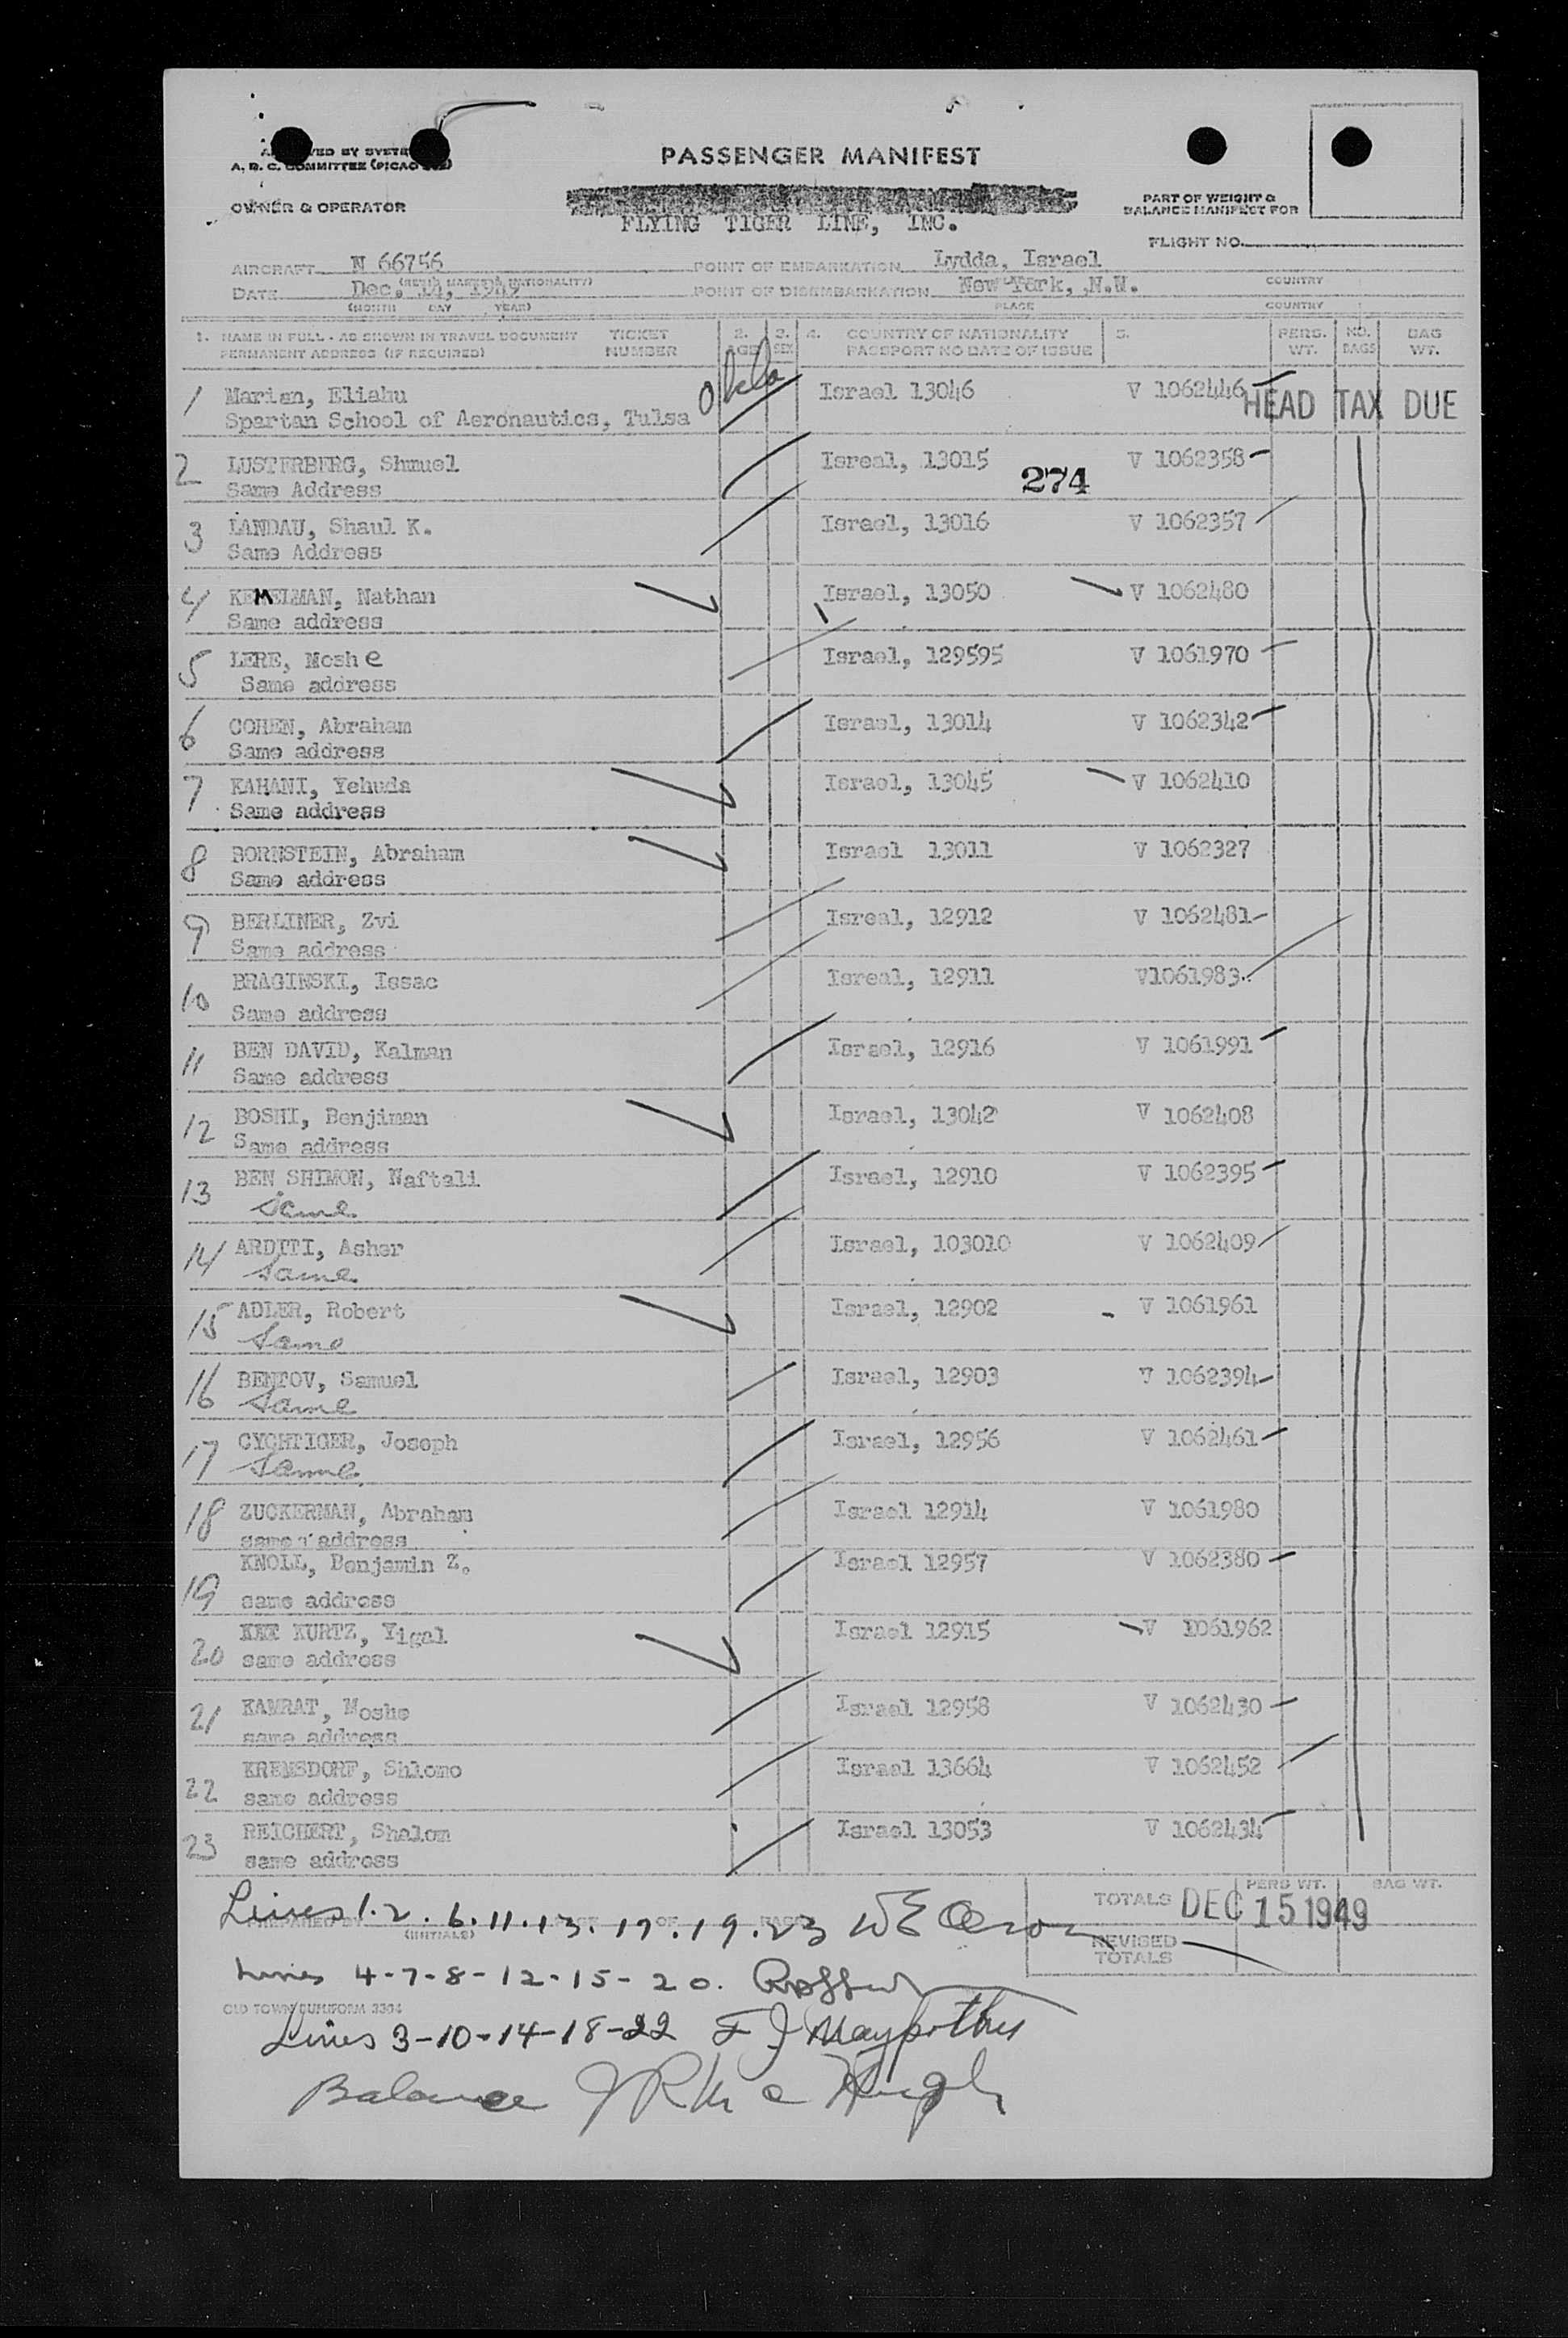 PASSENGER MANIFEST
A. B. C. COMMITTEE (PICAO
OWNER & OPERATOR
FLYING TIGER LINE, INC.
PART OF WEIGHT &
BALANCE MANIFEST FOR
FLIGHT NO.
AIRCRAFT N 66756 POINT OF EMBARKATION Lydda, Israel
DATE Dec. 14, 1949 POINT OF DISEMBARKATION New York, N.Y. COUNTRY
(MONTH DAY YEAR) PLACE COUNTRY
1. NAME IN FULL - AS SHOWN IN TRAVEL DOCUMENT TICKET 2. 3. 4. COUNTRY OF NATIONALITY 5. PERS. NO. BAG
PERMANENT ADDRESS (IF REQUIRED) NUMBER AGE SEX PASSPORT NO DATE OF ISSUE WT. BAGS WT.
1 Marian, Eliahu Israel 13046 V 1062446 HEAD TAX DUE
Spartan School of Aeronautics, Tulsa Okla
2 LUSTERBERG, Shmuel Isreal, 13015 V 1062358
Same Address 274
3 LANDAU, Shaul K. Israel, 13016 V 1062357
Same Address
4 KEMELMAN, Nathan Israel, 13050 V 1062480
Same address
5 LERE, Moshe Israel, 129595 V 1061970
Same address
6 COHEN, Abraham Israel, 13014 V 1062342
Same address
7 KAHANI, Yehuda Israel, 13045 V 1062410
Same address
8 BORNSTEIN, Abraham Israel 13011 V 1062327
Same address
9 BERLINER, Zvi Isreal, 12912 V 1062481
Same address
10 BRAGINSKI, Issac Isreal, 12911 V1061983
Same address
11 BEN DAVID, Kalman Israel, 12916 V 1061991
Same address
12 BOSHI, Benjiman Israel, 13042 V 1062408
Same address
13 BEN SHIMON, Naftali Israel, 12910 V 1062395
Same
14 ARDITI, Asher Israel, 103010 V 1062409
Same
15 ADLER, Robert Israel, 12902 V 1061961
Same
16 BENTOV, Samuel Israel, 12903 V 1062394
Same
17 CYCHTIGER, Joseph Israel, 12956 V 1062461
Same
18 ZUCKERMAN, Abraham Israel 12914 V 1061980
same address
19 KNOLL, Benjamin Z. Israel 12957 V 1062380
same address
20 KURTZ, Yigal Israel 12915 V 1061962
same address
21 KAMRAT, Moshe Israel 12958 V 1062430
same address
22 KREMSDORF, Shlomo Israel 13664 V 1062452
same address
23 REICHERT, Shalom Israel 13053 V 1062434
same address
PERS WT. BAG WT.
Lines 1.2.6.11.13.17.19.23 TOTALS DEC 15 1949
(INITIALS) REVISED
TOTALS
Lines 4-7-8-12-15-20.
OLD TOWN DUPLIFORM 3304
Lines 3-10-14-18-22
Balance